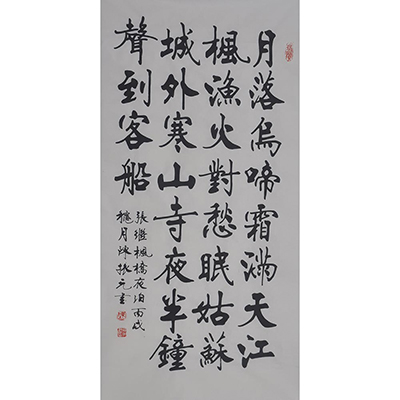 月落烏啼霜滿天江
楓漁火對愁眠姑蘇
城外寒山寺夜半鐘
聲到客船
張繼楓橋夜泊丙戌
月陳振元書